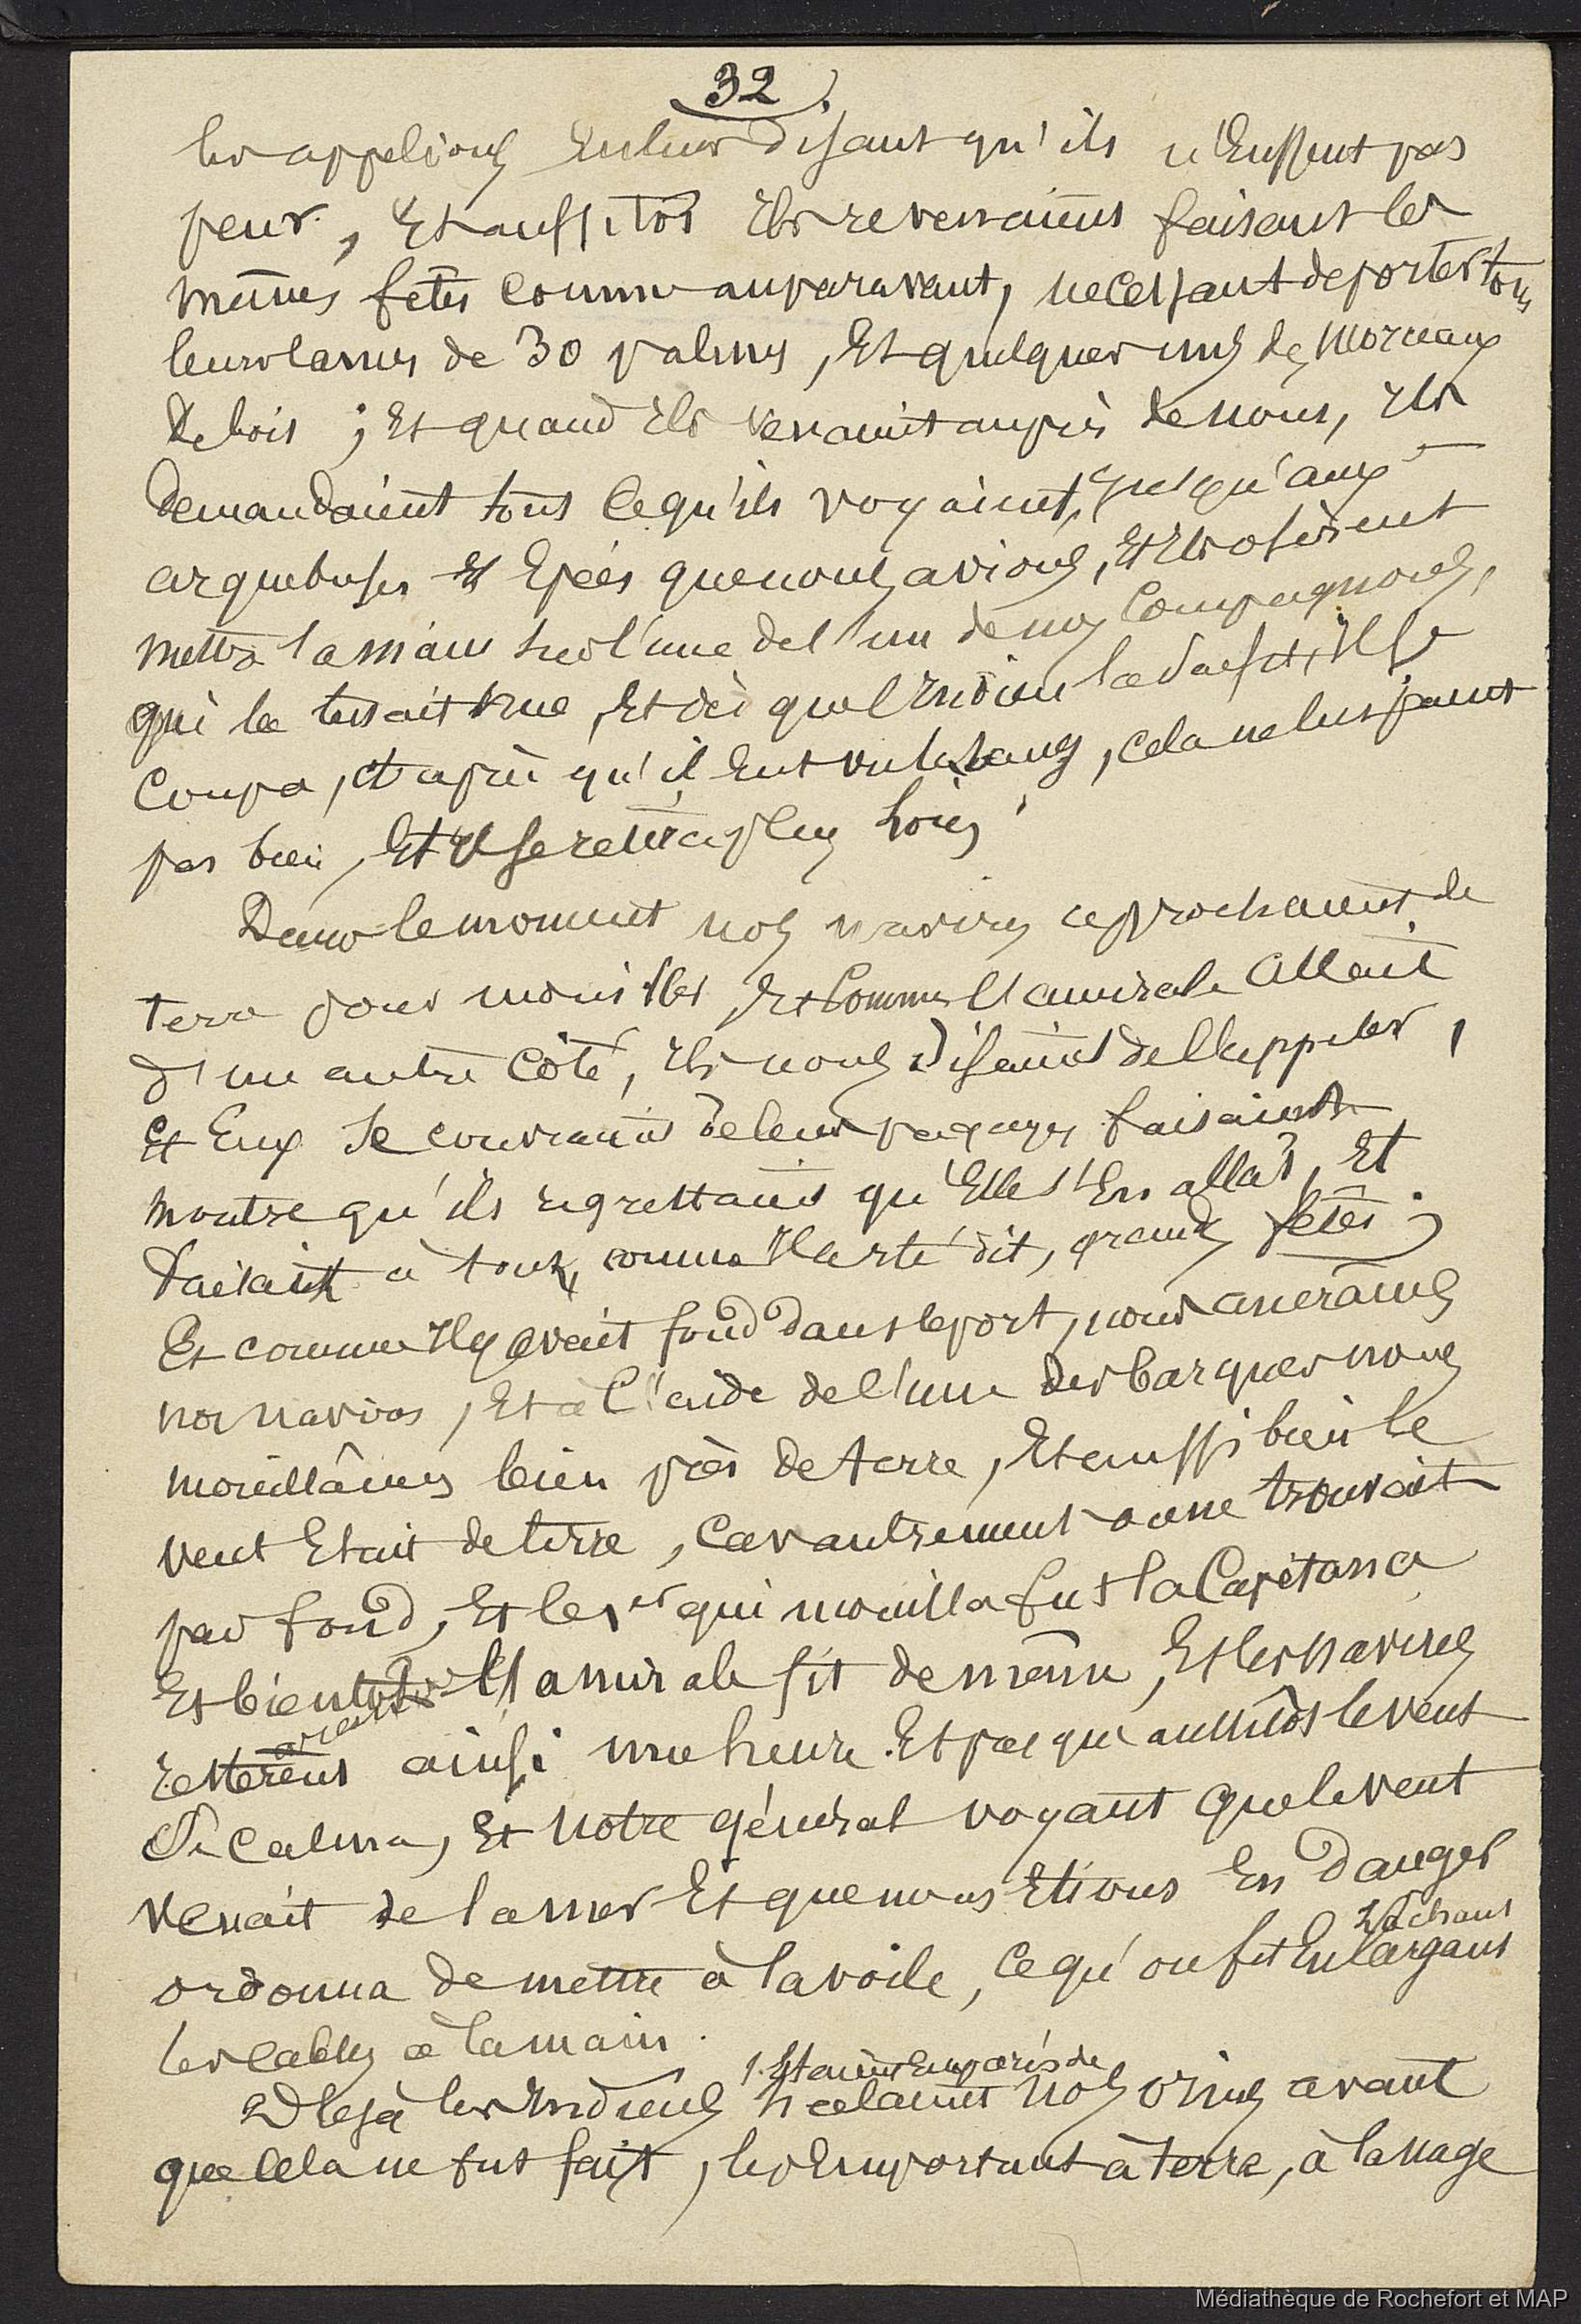 32
les appelions en leur disant qu'ils n'eussent pas
peur, et aussitôt ils revenaient faisant les
mêmes fêtes comme auparavant, ne cessant de porter tous
leurs lances de 30 palmes, et quelques uns des morceaux
de bois ; et quand ils venaient auprès de nous, ils
demandaient tout ce qu'ils voyaient, jusqu'aux
arquebuses et epées que nous avions, et ils osèrent
mettre la main sur l'une de l'un de nos compagnons,
qui la tenait nue, et dès que l'Indien la saisit, il se
coupa, et après qu'il eut vu le sang, cela ne lui parut
pas bien, et il se retira plus loin.
Dans le moment nos navires approchaient de
terre pour mouiller, et comme l'amirale allait
d'un autre côté, ils nous disaient de l'appeler,
et eux se couvraient de leurs pagayes faisaient
montre qu'ils regrettaient qu'elle s'en allât, et
faisaient à tous, comme il a été dit, grandes fêtes ;
Et comme il y avait fond dans le port, nous ancrâmes
nos navires, et à l'aide de l'une des barques nous
mouillâmes bien près de terre, et aussi bien le
vent était de terre, car autrement on ne trouvait
pas fond, et le 1er qui mouilla fut la Capitana
Et bientôt l'amirale fit de même, et les navires
restèrent ainsi une heure. Et parque aussitôt le vent
se calma, et notre général voyant que le vent
venait de la mer et que nous étions en danger
lâchant
ordonna de mettre à la voile, ce qu'on fit en largant
les cables à la main.
s'étaient emparés de
Déjà les Indiens halaient nos orins avant
que cela ne fut fait, les emportant à terre, à la nage
Médiathèque de Rochefort et MAP